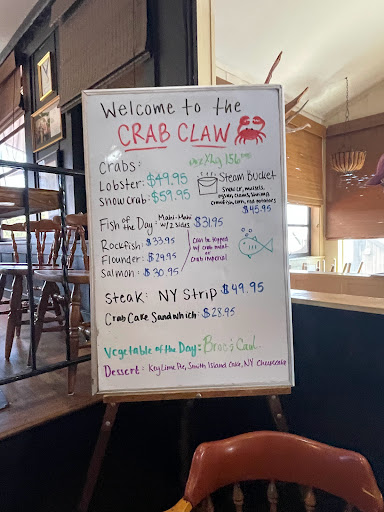 Welcome to the
CRAB CLAW
Crabs:
Lobster: $49.95
Snowcrab: $59.95
Steam Bucket
Snow cr, mussels,
Crawfish, corn, red potatoes
$45.95
Fish of the Day: Mahi-Mahi w/2 sides $31.95
Rockfish: $33.95
Flounder: $29.95
Salmon: $30.95
Can be topped
w/ crab meat
or
Crab Imperial
Steak: NY Strip $49.95
Crab Cake Sandwich: $28.95
Vegetable of the Day: Broc & Caul
Dessert: Key Lime Pie, Smith Island Cake, NY Cheesecake